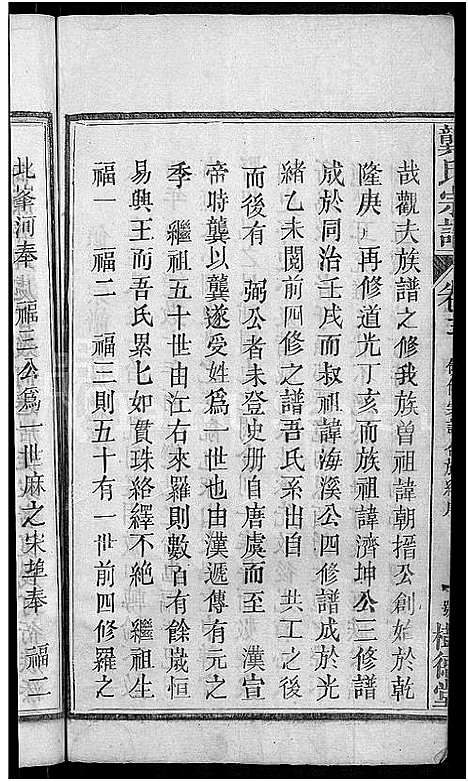 龔氏宗譜
卷三
哉觀夫族譜之修我族曾祖諱朝搢公創始於乾
隆庚戌再修道光丁亥而族祖諱濟坤公三修譜
成於同治壬戌而叔祖諱海溪公四修譜成於光
緒乙未閱前四修之譜吾氏系出自 共工之後
而後有 弼公者未登史册自唐虞而至 漢宣
帝時龔以龔遂爰姓爲一世也由漢遞傳有元之
季 繼祖五十世由江右來羅則數百有餘歲恒
易興王而吾氏累七如貫珠絡繹不絕 繼祖生
福一 福二 福三則五十有一世前四修羅之
北峯河奉 福三公爲一世麻之宋埠奉 福二